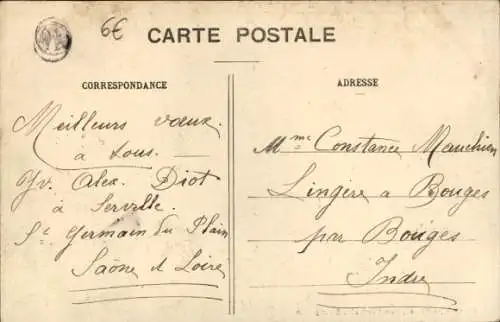 6€
CARTE POSTALE
CORRESPONDANCE
Meilleurs vœux
à tous.
Alex. Diot
à Serville
St Germain du Plain
Saône et Loire
ADRESSE
Mme Constance Mauchien
Lingère a Bouges
par Bouges
Indre